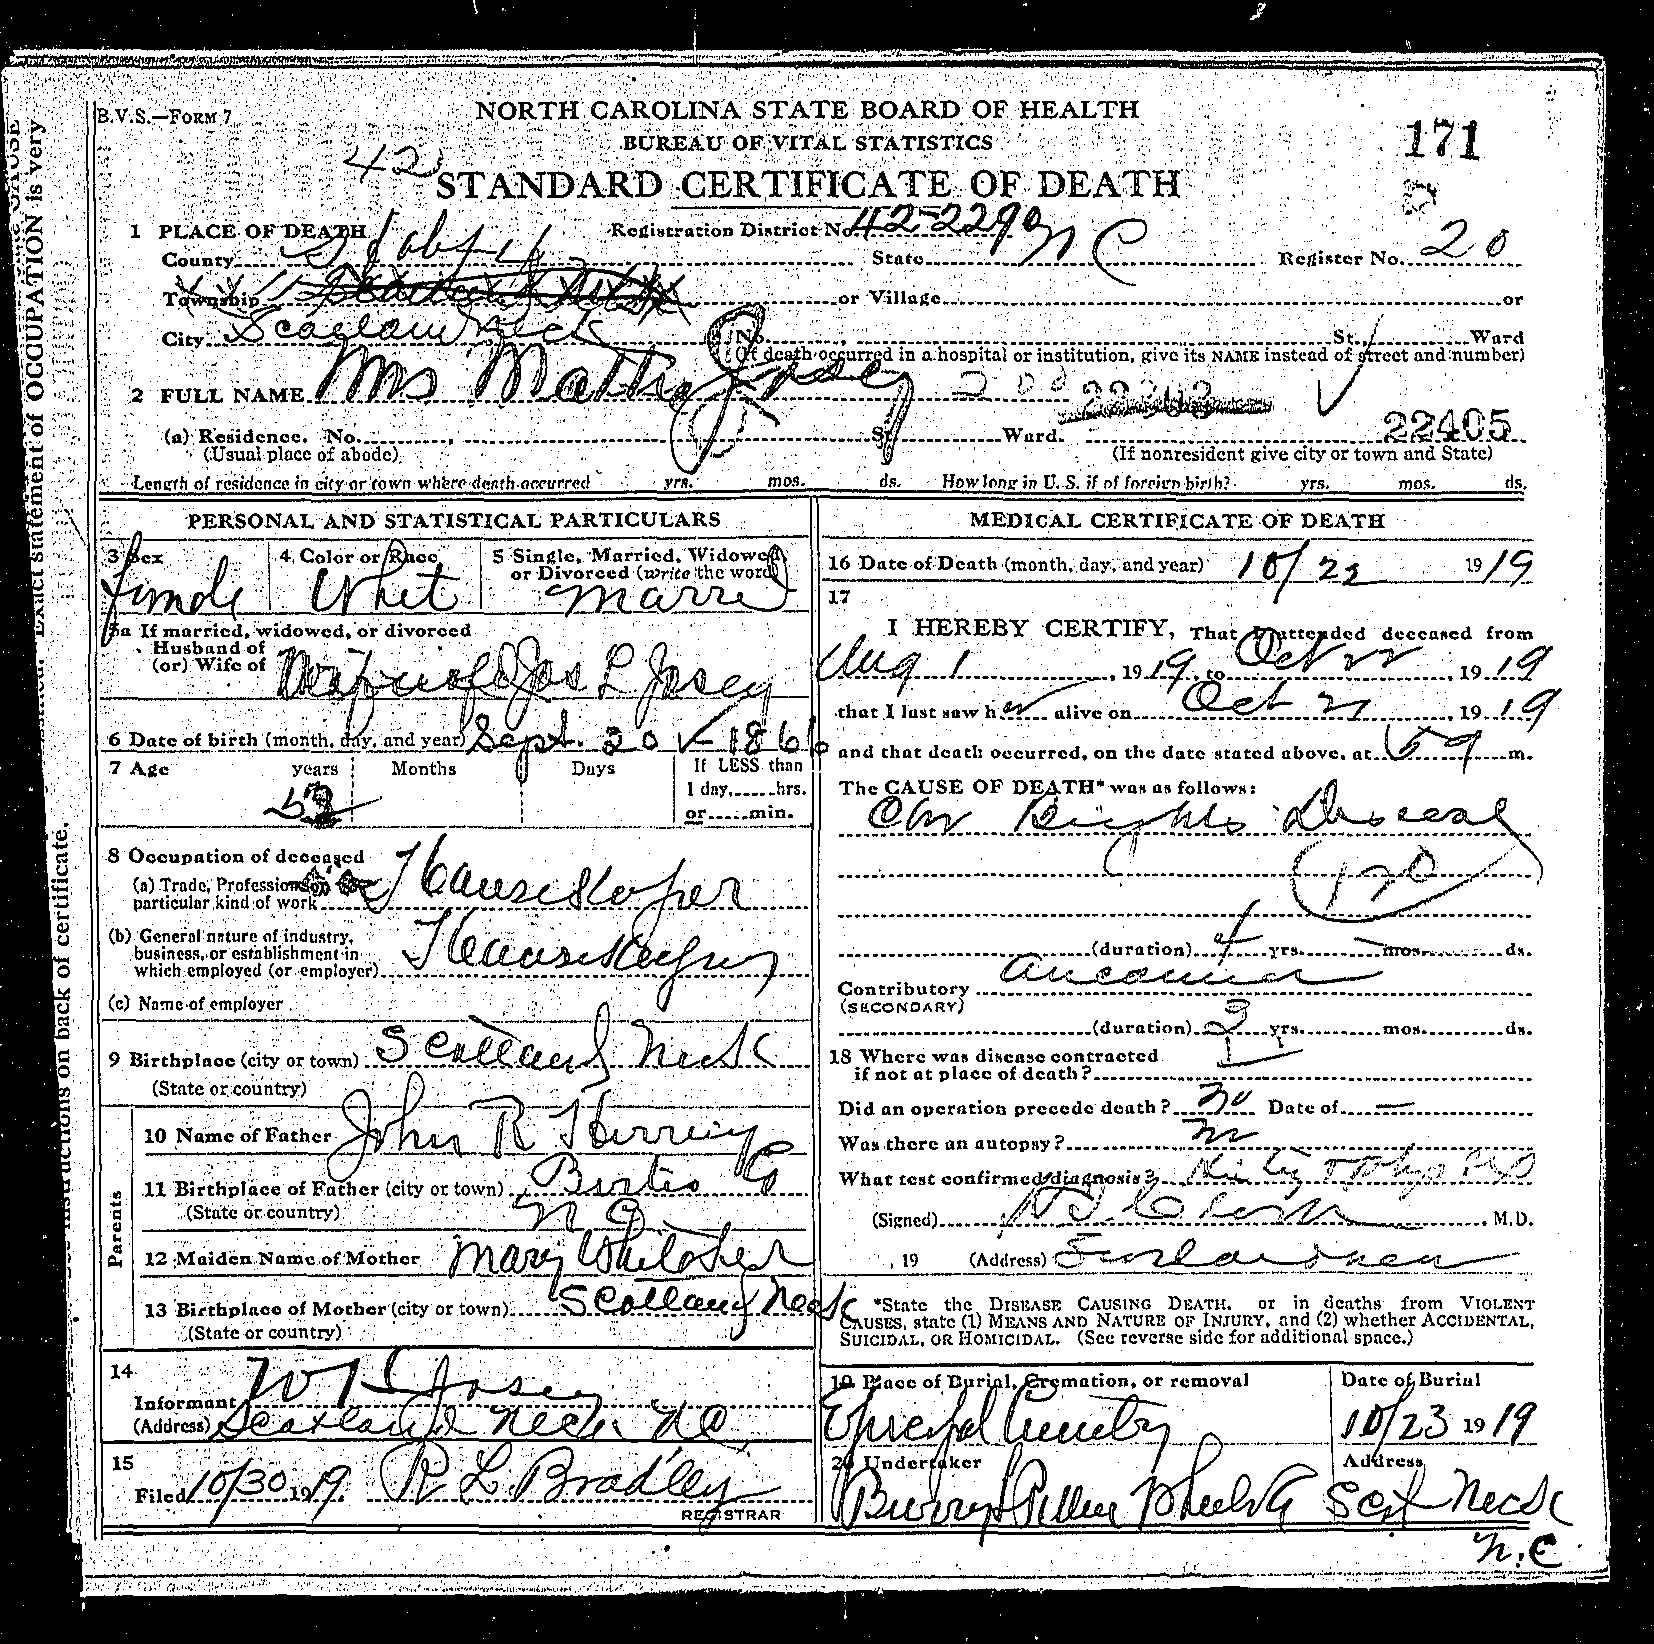 B.V.S.—FORM 7
NORTH CAROLINA STATE BOARD OF HEALTH
171
BUREAU OF VITAL STATISTICS
42
STANDARD CERTIFICATE OF DEATH
1 PLACE OF DEATH
Registration District No. 42-2290
County
State N C
Register No. 20
Township
or Village or
City Scotland Neck
No. St. Ward
(If death occurred in a hospital or institution, give its NAME instead of street and number)
2 FULL NAME Mrs Mattie Josey
22405
(a) Residence. No. St. Ward.
(Usual place of abode)
(If nonresident give city or town and State)
Length of residence in city or town where death occurred yrs. mos. ds. How long in U. S. if of foreign birth? yrs. mos. ds.
PERSONAL AND STATISTICAL PARTICULARS
3 Sex
4 Color or Race
5 Single, Married, Widowed
or Divorced (write the word)
female
Whit
Marred
5a If married, widowed, or divorced
Husband of
(or) Wife of
Wife of Jos L Josey
6 Date of birth (month, day, and year) Sept. 20 1866
7 Age years Months Days If LESS than
1 day, hrs.
or min.
53
8 Occupation of deceased
(a) Trade, Profession or
particular kind of work
Housekeeper
(b) General nature of industry,
business, or establishment in
which employed (or employer)
Housekeeping
(c) Name of employer
9 Birthplace (city or town) Scotland Neck
(State or country)
Parents
10 Name of Father John R Herring
11 Birthplace of Father (city or town) Bertie Co
(State or country) N C
12 Maiden Name of Mother Mary Whitaker
13 Birthplace of Mother (city or town) Scotland Neck
(State or country)
14
Informant Josey
(Address) Scotland Neck N C
15
Filed 10/30 1919. R L Bradley
REGISTRAR
MEDICAL CERTIFICATE OF DEATH
16 Date of Death (month, day, and year) 10/22 1919
17
I HEREBY CERTIFY, That I attended deceased from
Aug 1, 1919, to Oct 22, 1919
that I last saw her alive on Oct 21, 1919
and that death occurred, on the date stated above, at m.
The CAUSE OF DEATH* was as follows:
Chr Brights Disease
120
(duration) 4 yrs. mos. ds.
Contributory
(SECONDARY)
(duration) 2 yrs. mos. ds.
18 Where was disease contracted
if not at place of death?
Did an operation precede death? No Date of —
Was there an autopsy? No
What test confirmed diagnosis?
(Signed) M.D.
, 19 (Address)
*State the DISEASE CAUSING DEATH, or in deaths from VIOLENT
CAUSES, state (1) MEANS AND NATURE OF INJURY, and (2) whether ACCIDENTAL,
SUICIDAL, OR HOMICIDAL. (See reverse side for additional space.)
19 Place of Burial, Cremation, or removal
Date of Burial
Episcopal Cemetery
10/23 1919
20 Undertaker
Address
Scot Neck
N.C.
Exact statement of OCCUPATION is very
instructions on back of certificate.